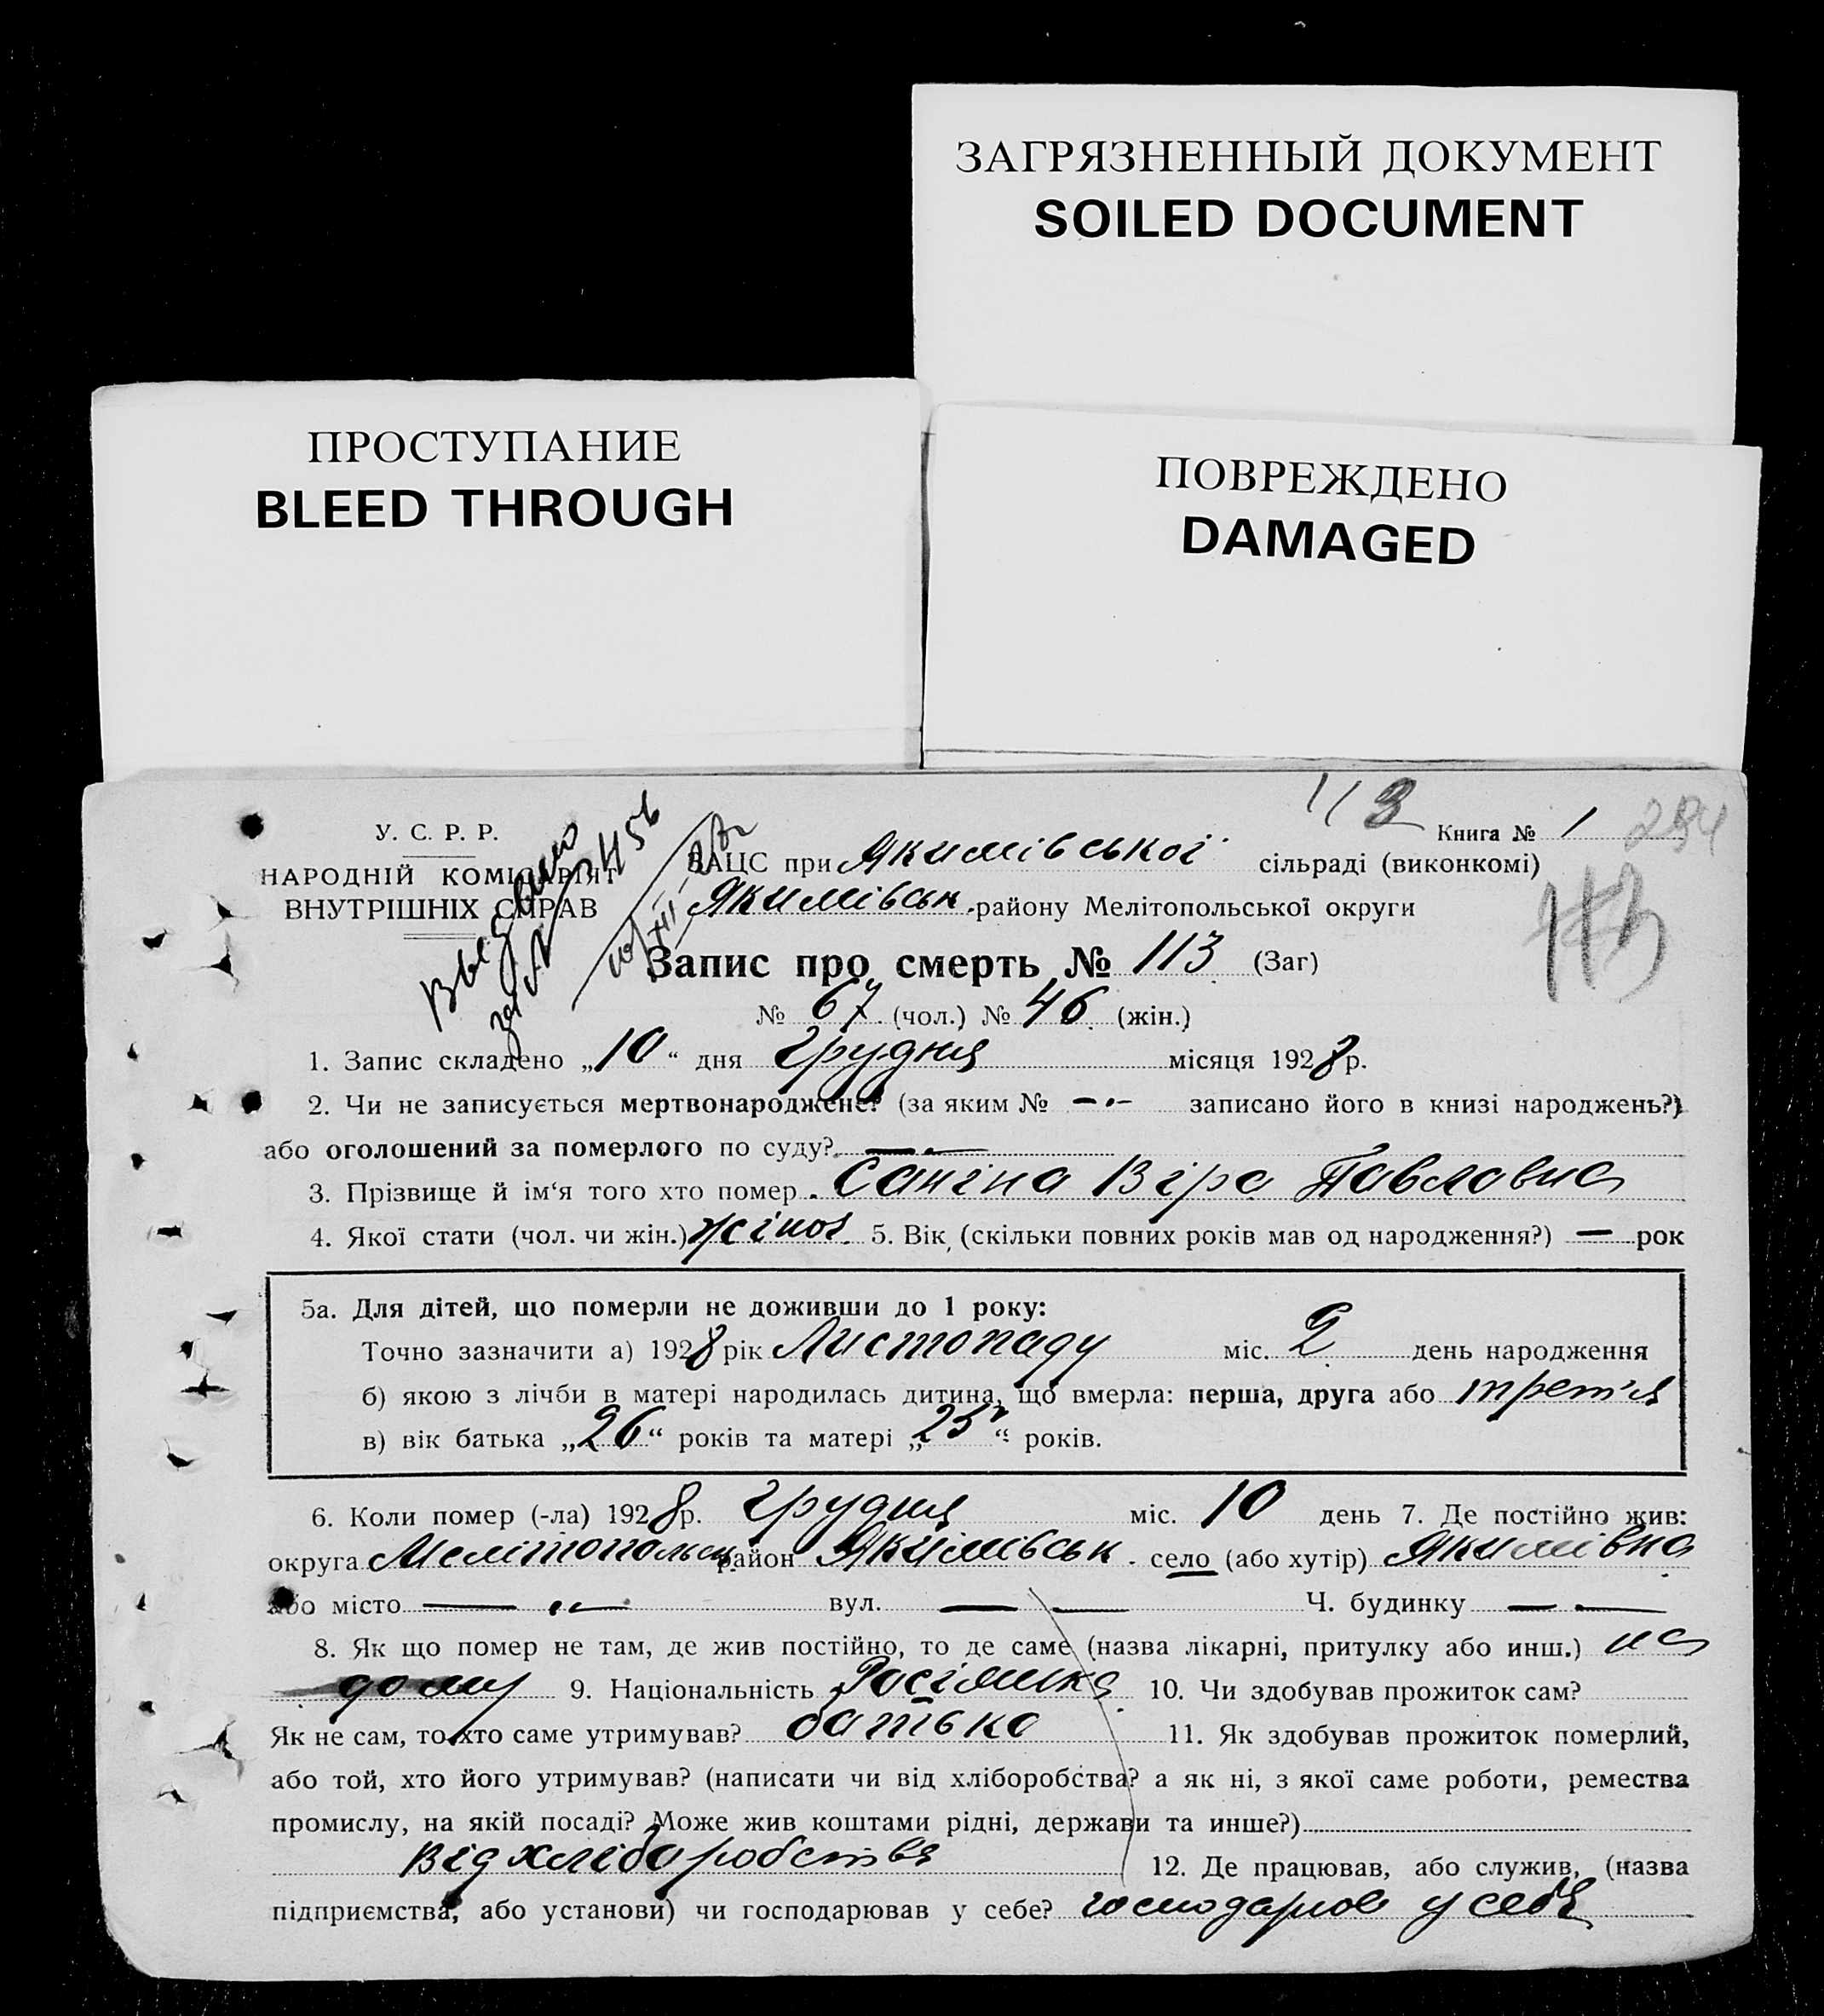 ЗАГРЯЗНЕННЫЙ ДОКУМЕНТ
SOILED DOCUMENT
ПРОСТУПАНИЕ
BLEED THROUGH
ПОВРЕЖДЕНО
DAMAGED
113
Книга № 1
294
У. С. Р. Р.
НАРОДНІЙ КОМІСАРІЯТ
ВНУТРІШНІХ СПРАВ
ВАЦС при Якимівської сільраді (виконкомі)
Якимівськ. району Мелітопольської округи
113
Запис про смерть № 113 (Заг)
№ 67 (чол.) № 46 (жін.)
1. Запис складено „10“ дня грудня місяця 1928 р.
2. Чи не записується мертвонароджене? (за яким № — · — записано його в книзі народжень?)
або оголошений за померлого по суду? — —
3. Прізвище й ім'я того хто помер. Саніна Віра Павлавна
4. Якої стати (чол. чи жін.) жіної. 5. Вік, (скільки повних років мав од народження?) — рок
5а. Для дітей, що померли не доживши до 1 року:
Точно зазначити а) 1928 рік Листопаду міс. 2 день народження
б) якою з лічби в матері народилась дитина, що вмерла: перша, друга або трет'я
в) вік батька „26“ років та матері „25“ років.
6. Коли помер (-ла) 1928 р. грудня міс. 10 день 7. Де постійно жив:
округа Мелітопольськ район Якимівськ. село (або хутір) Якимівка
або місто — — вул. — — Ч. будинку — —
8. Як що помер не там, де жив постійно, то де саме (назва лікарні, притулку або инш.) на
дому 9. Національність Росіянка 10. Чи здобував прожиток сам?
Як не сам, то хто саме утримував? батько 11. Як здобував прожиток померлий,
або той, хто його утримував? (написати чи від хліборобства? а як ні, з якої саме роботи, ремества
промислу, на якій посаді? Може жив коштами рідні, держави та инше?)
від хліборобства 12. Де працював, або служив, (назва
підприємства, або установи) чи господарював у себе? господарював у себе